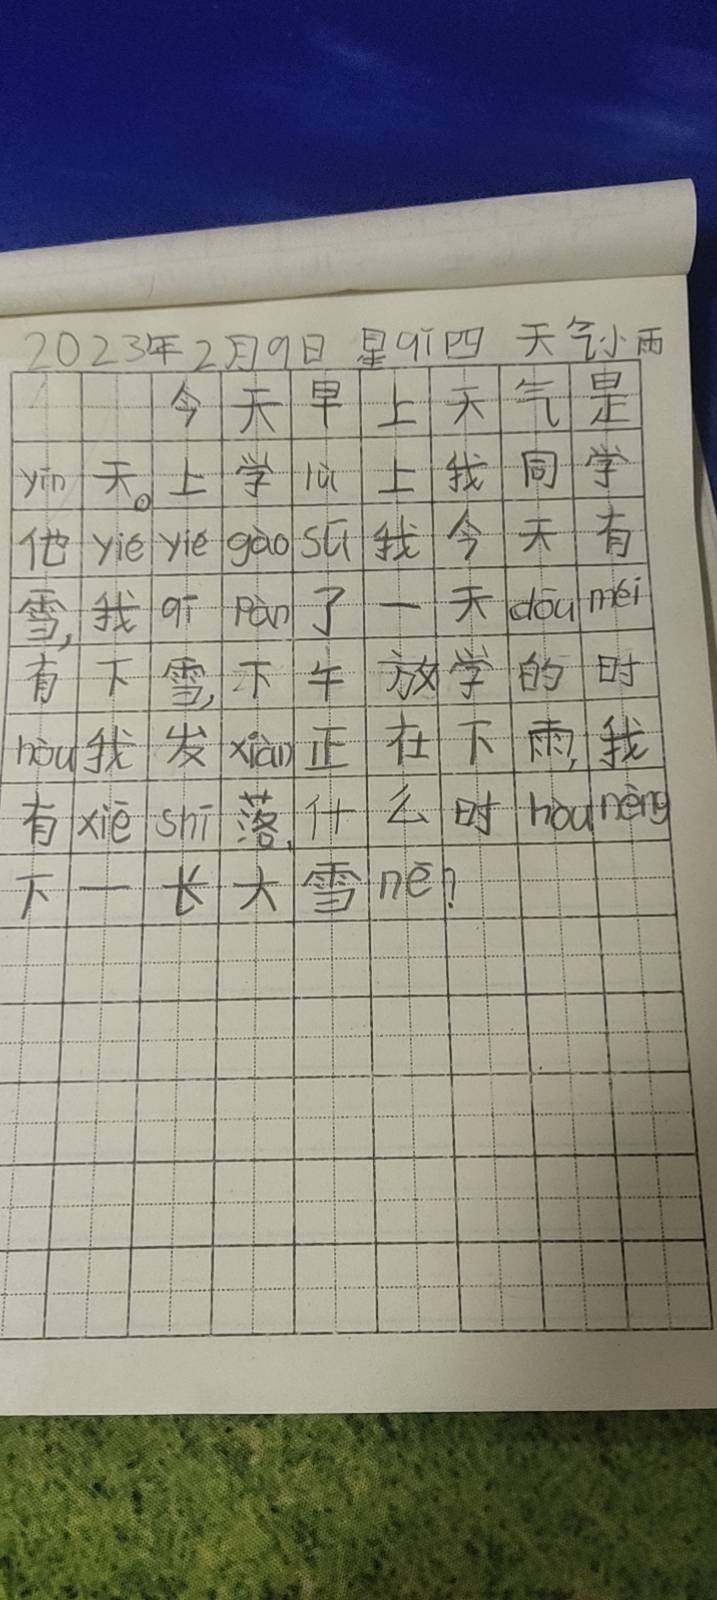 2023年2月9日 星qī四 天气小雨
今天早上天气是
yīn天。上学lù上我同学
他yié yié gào sù我今天有
雪,我qī pàn了一天dōu méi
有下雪,下午放学的时
hòu我发xiàn正在下雨,我
有xiē shī落,什么时hòu néng
下一长大雪nē?